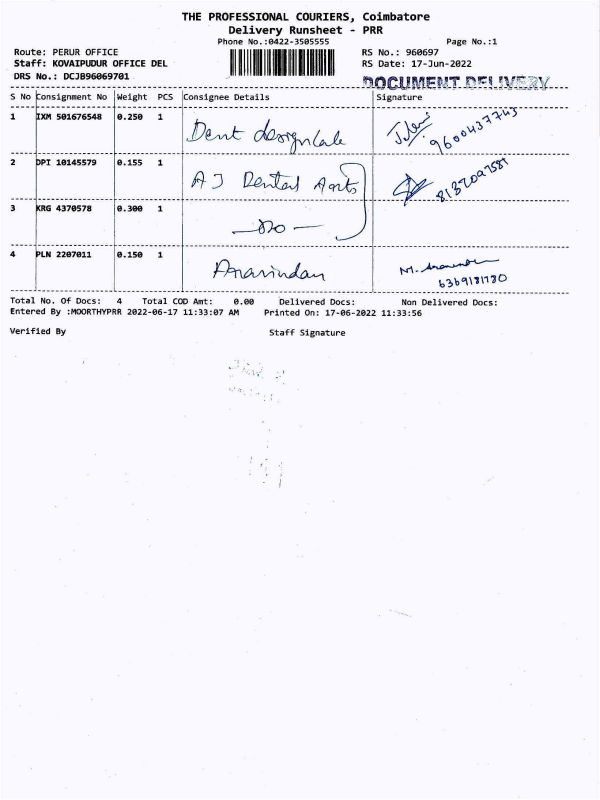 THE PROFESSIONAL COURIERS, Coimbatore
Delivery Runsheet - PRR
Phone No.:0422-3505555 Page No.:1
Route: PERUR OFFICE RS No.: 960697
Staff: KOVAIPUDUR OFFICE DEL RS Date: 17-Jun-2022
DRS No.: DCJB96069701 DOCUMENT DELIVERY
S No Consignment No Weight PCS Consignee Details Signature
1 IXM 501676548 0.250 1 Dent 9600437743
2 DPI 10145579 0.155 1 AJ Dental Arts 8132097581
3 KRG 4370578 0.300 1 — Do —
4 PLN 2207011 0.150 1 Aravindan M.
6369181780
Total No. Of Docs: 4 Total COD Amt: 0.00 Delivered Docs: Non Delivered Docs:
Entered By :MOORTHYPRR 2022-06-17 11:33:07 AM Printed On: 17-06-2022 11:33:56
Verified By Staff Signature